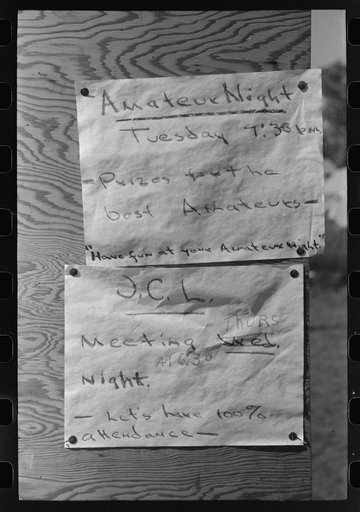 -Amateur Night
Tuesday 7:30 pm
-Prizes for the
best Amateurs-
"Have fun at your Amateur Night."
J.C.L.
THURS
Meeting Wed.
AT 6:30
Night.
- Let's have 100%
attendance-